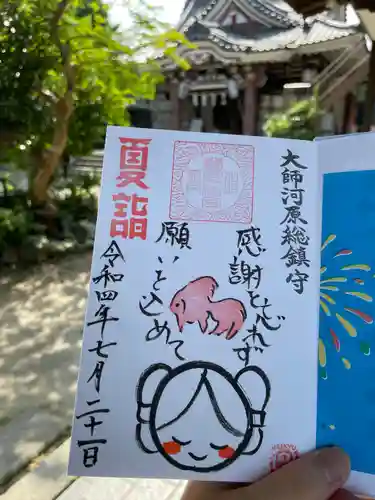 大師河原総鎮守
感謝を忘れず
願いを込めて
夏詣
令和四年七月二十一日